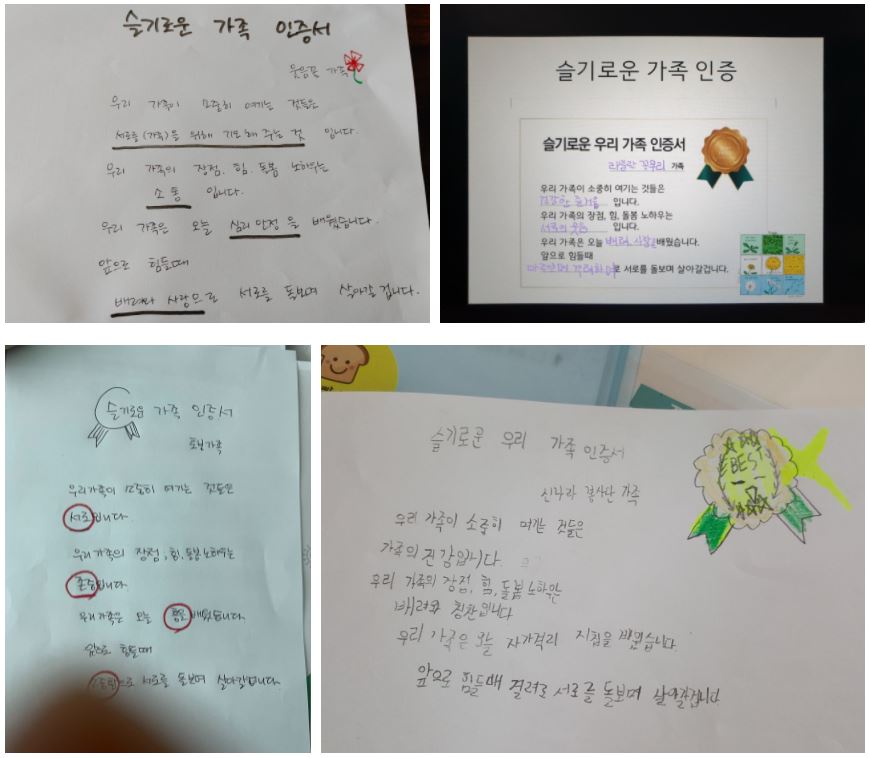 슬기로운 가족 인증서
웃음꽃 가족
우리 가족이 소중히 여기는 것들은
서로를(가족)을 위해 기도해 주는 것 입니다.
우리 가족의 장점, 힘, 돌봄 노하우는
소통 입니다.
우리 가족은 오늘 심리안정을 배웠습니다.
앞으로 힘들때
배려와 사랑으로 서로를 돌보며 살아갈 겁니다.
슬기로운 가족 인증
슬기로운 우리 가족 인증서
가족
우리 가족이 소중히 여기는 것들은
입니다.
우리 가족의 장점, 힘, 돌봄 노하우는
서로의 웃음 입니다.
우리 가족은 오늘 배려, 사랑을 배웠습니다.
앞으로 힘들때
로 서로를 돌보며 살아갈겁니다.
슬기로운 가족 인증서
가족
우리가족이 소중히 여기는 것들은
입니다.
우리가족의 장점, 힘, 돌봄노하우는
존중입니다.
우리가족은 오늘 배웠습니다.
앞으로 힘들때
으로 서로를 돌보며 살아갈겁니다.
슬기로운 우리 가족 인증서
BEST
신나라 봉사단 가족
우리 가족이 소중히 여기는 것들은
가족의 건강입니다.
우리 가족의 장점, 힘, 돌봄노하우는
배려와 칭찬입니다
우리 가족은 오늘 자가격리 지침을 배웠습니다.
앞으로 힘들때 격려로 서로를 돌보며 살아갈겁니다.